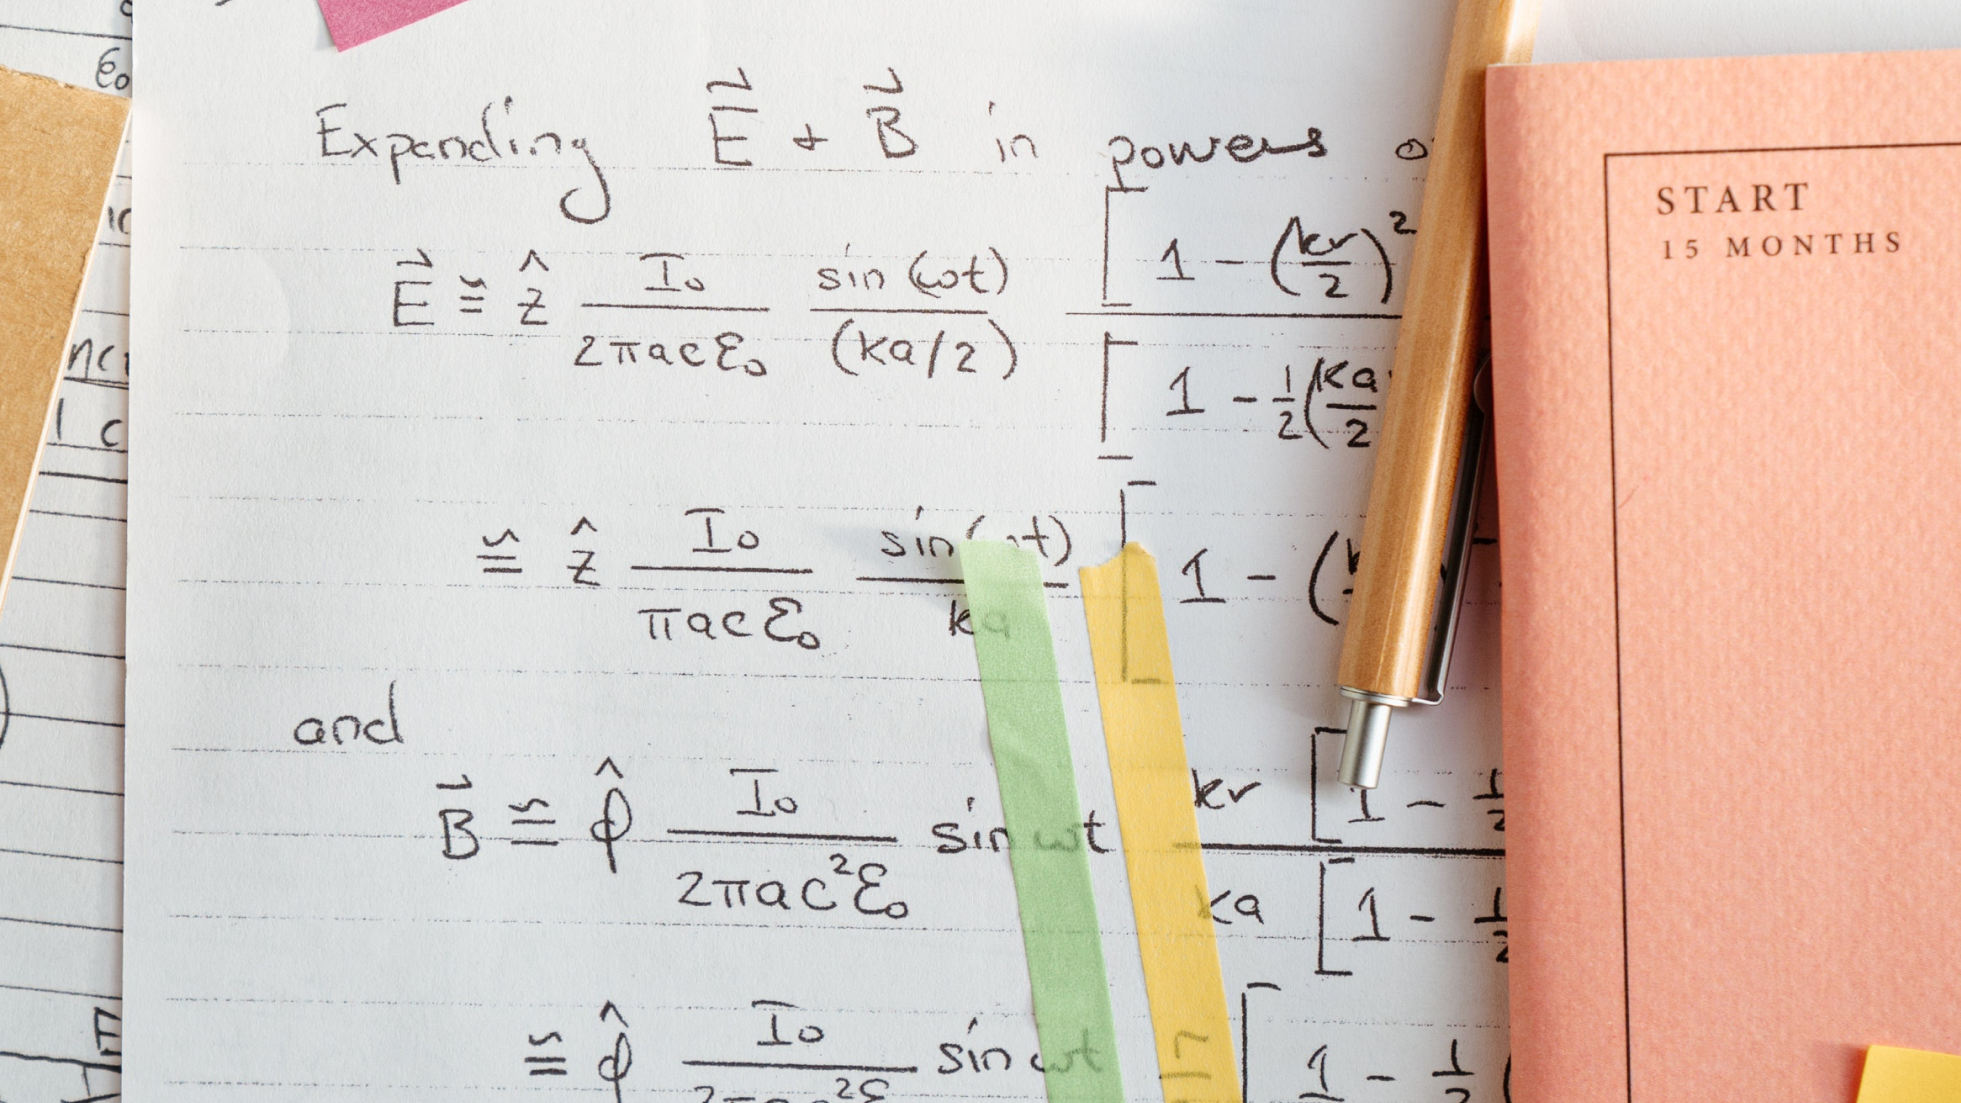 Expanding E⃗ + B⃗ in powers
E⃗ ≅ ẑ I₀/(2πacε₀) sin(ωt)/(ka/2) [1 - (kr/2)²
[1 - 1/2(ka/2
≅ ẑ I₀/(πacε₀) sin(ωt)/ka [1 - (
and
B⃗ ≅ φ̂ I₀/(2πac²ε₀) sin ωt kr [1 - 1/2
ka [1 - 1/2
≅ φ̂ I₀ sin ωt [1 - 1/2 (
START
15 MONTHS
ε₀